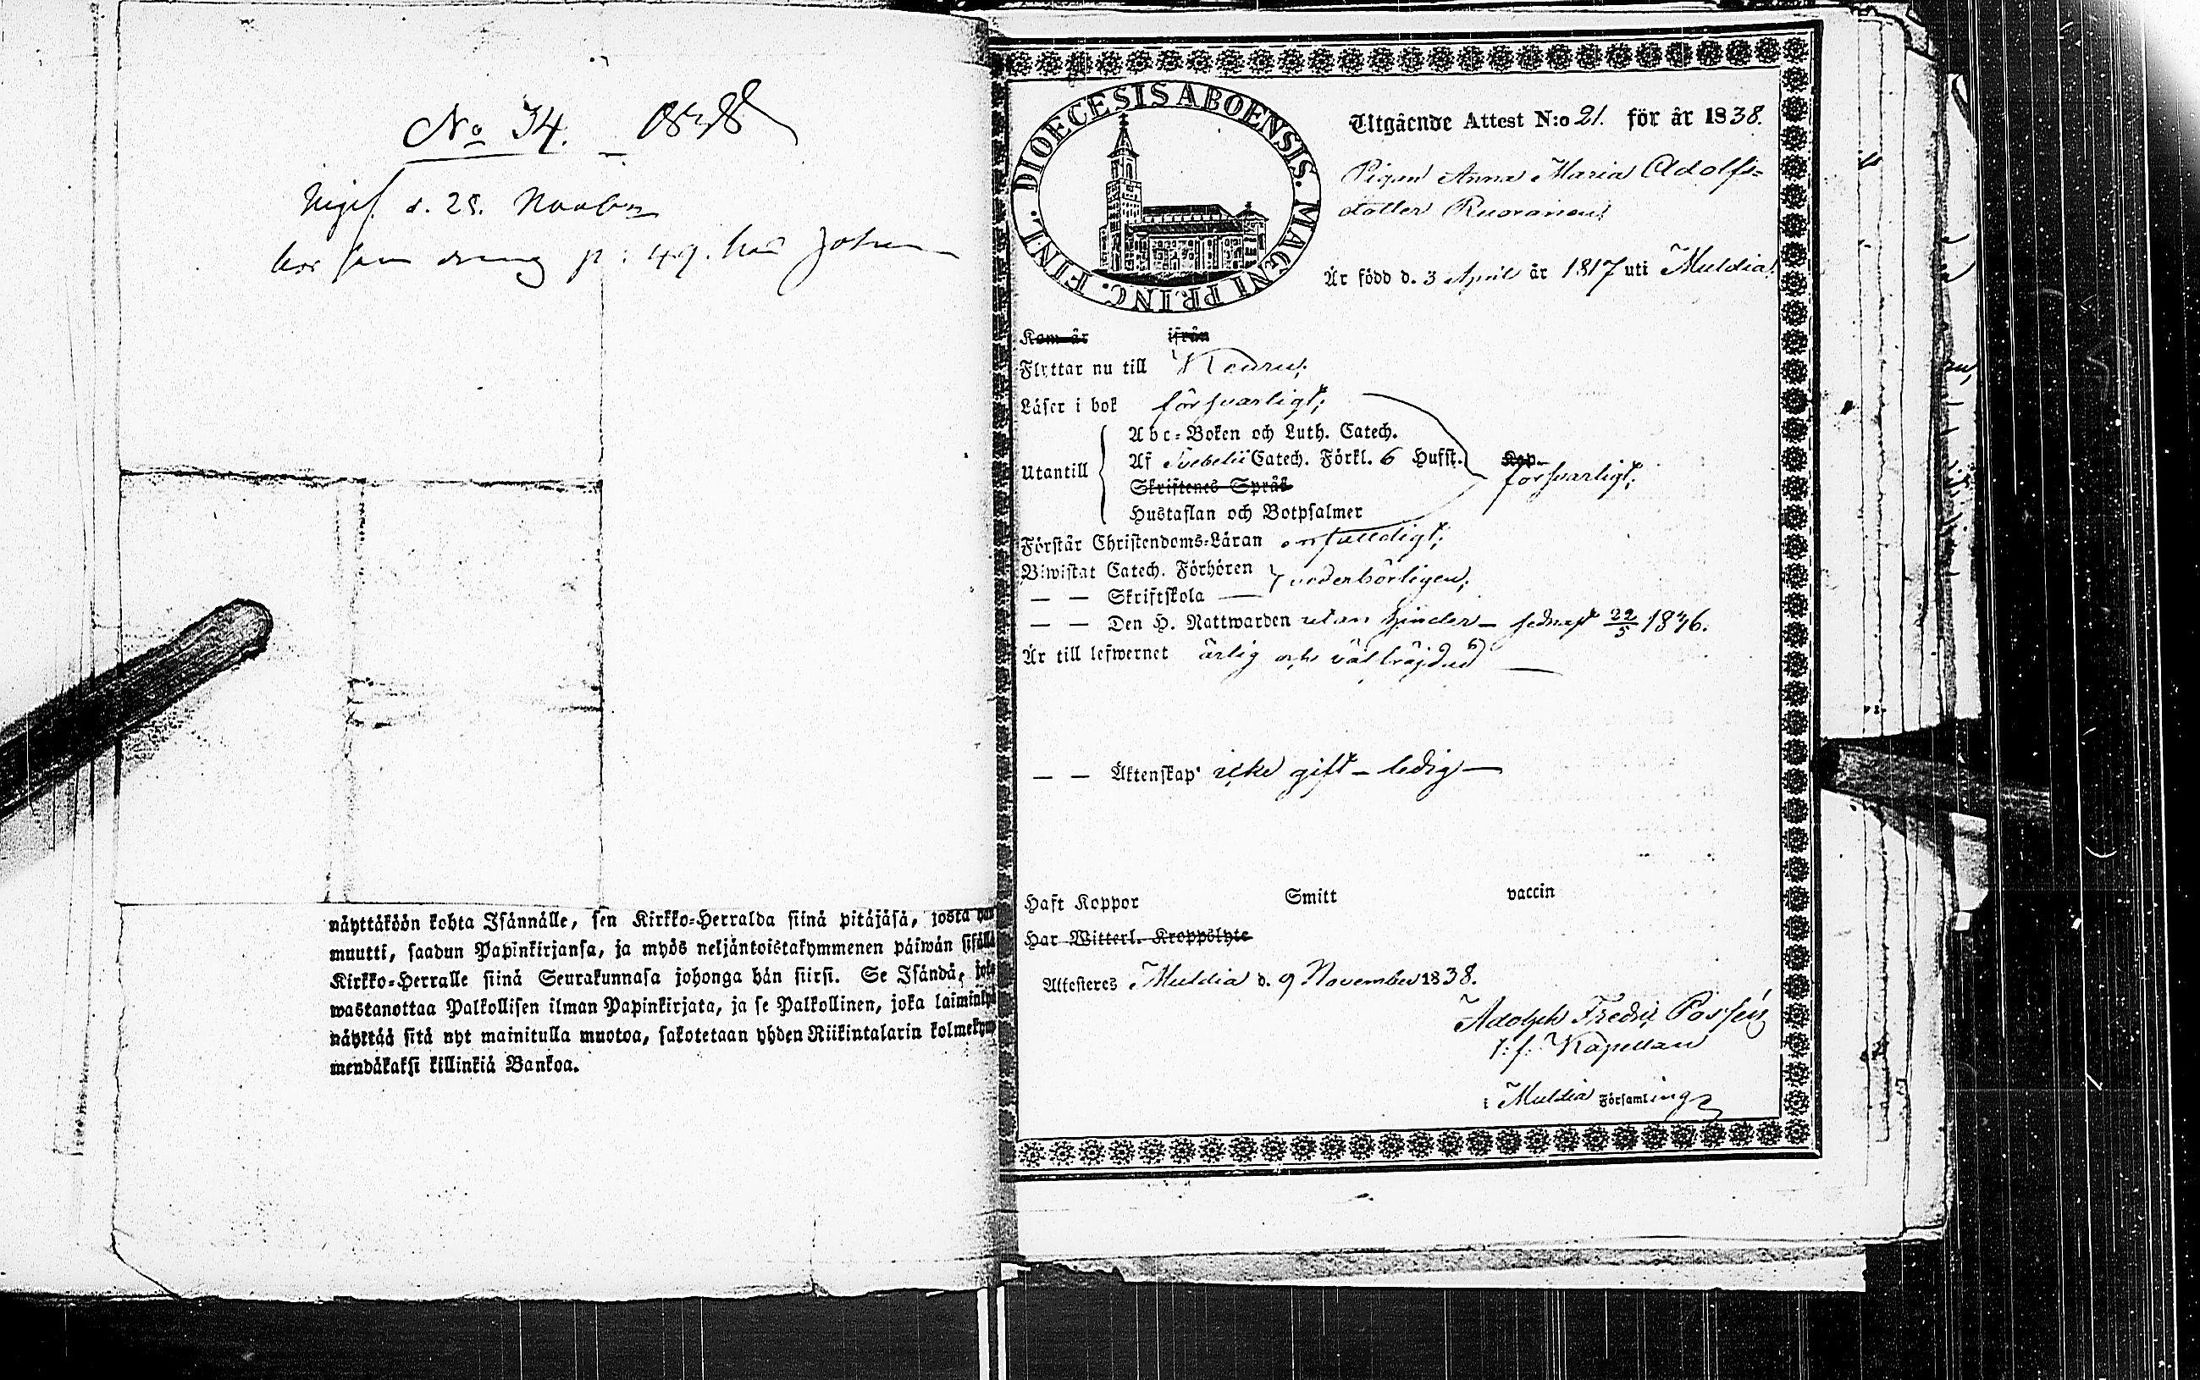 No 34. 1838
d. 25.
näyttäköön kohta Isännälle, sen Kirkko-Herralda siinä pitäjäsä, josta hän
muutti, saadun Papinkirjansa, ja myös neljäntoistakymmenen päiwän sisällä
Kirkko-Herralle siinä Seurakunnasa johonga hän siirsi. Se Isändä, joka
wastanottaa Palkollisen ilman Papinkirjata, ja se Palkollinen, joka laiminlyö
näyttää sitä nyt mainitulla muotoa, sakotetaan yhden Riikintalarin kolmekym
mendäkaksi killinkiä Bankoa.
DIOECESIS ABOENSIS. MAGNI PRINC. FINL.
Utgående Attest N:o 21. för år 1838.
Pigan Anna Maria Adolfs-
dotter Ruoranen;
Är född d. 3 April år 1817 uti Muldia;
Kom år ifrån
Flyttar nu till Keuru;
Läser i bok försvarligt;
Utantill
Abc-Boken och Luth. Catech.
Af Svebelii Catech. Förkl. 6 Hufst. Kap.
försvarligt;
Skriftenes Språk
Hustaflan och Botpsalmer
Förstår Christendoms-Läran enfaldigt;
Biwistat Catech. Förhören
vederbörligen;
— — Skriftskola
— — Den H. Nattwarden utan hinder – sednast 22/5 1836.
Är till lefwernet ärlig och välfräjdad —
— — Äktenskap icke gift – ledig —
Haft Koppor Smitt vaccin
Har Witterl. Kroppslyte
Attesteres Muldia d. 9 November 1838.
Adolph Fredr.
t: f: Kapellan
i Muldia Församling